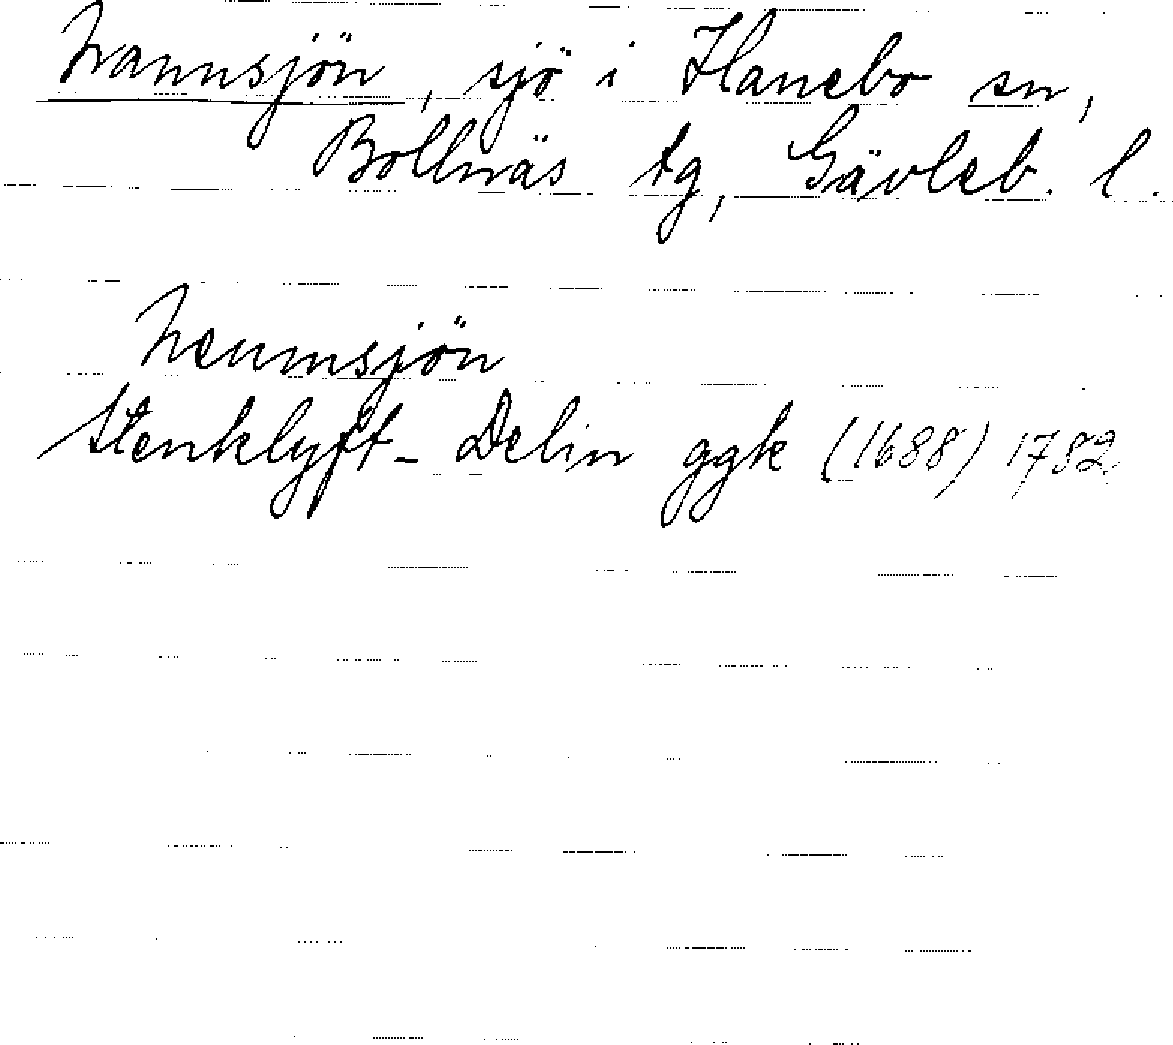 Nannsjön, sjö i Hanebo sn,
Bollnäs tg, Gävleb. l.
Neumsjön
Stenklyft- Delin ggk (1688) 1782